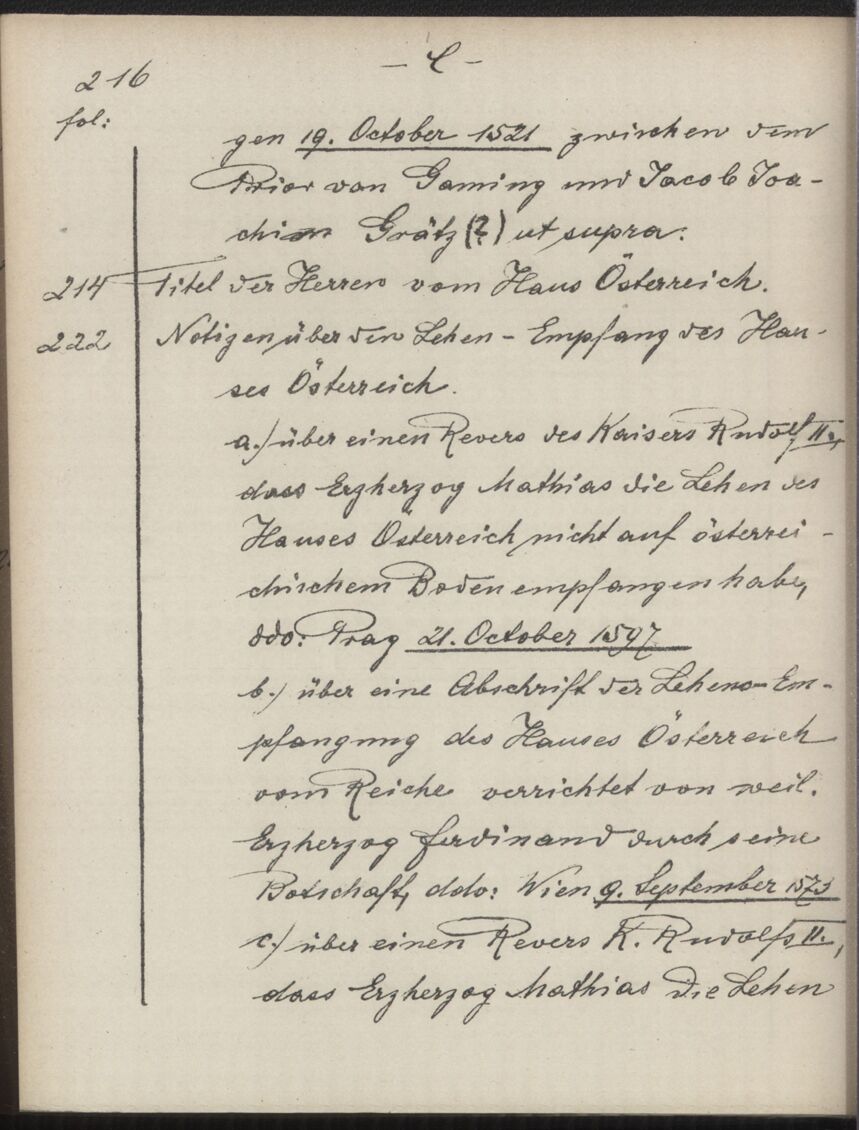 216
fol:
gen 19. October 1521 zwischen dem
Prior von Gaming und Jacob Joa-
chim Grätz (?) ut supra.
214 Titel der Herren vom Haus Österreich.
222 Notizen über den Lehen-Empfang des Hau-
ses Österreich.
a.) über einen Revers des Kaisers Rudolf II.,
dass Erzherzog Mathias die Lehen des
Hauses Österreich nicht auf österrei-
chischem Boden empfangen habe,
ddo: Prag 21. October 1597
b.) über eine Abschrift der Lehens-Em-
pfangung des Hauses Österreich
vom Reiche verrichtet von weil.
Erzherzog Ferdinand durch seine
Botschaft, ddo: Wien 9. September 1573
c.) über einen Revers K. Rudolfs II.,
dass Erzherzog Mathias die Lehen